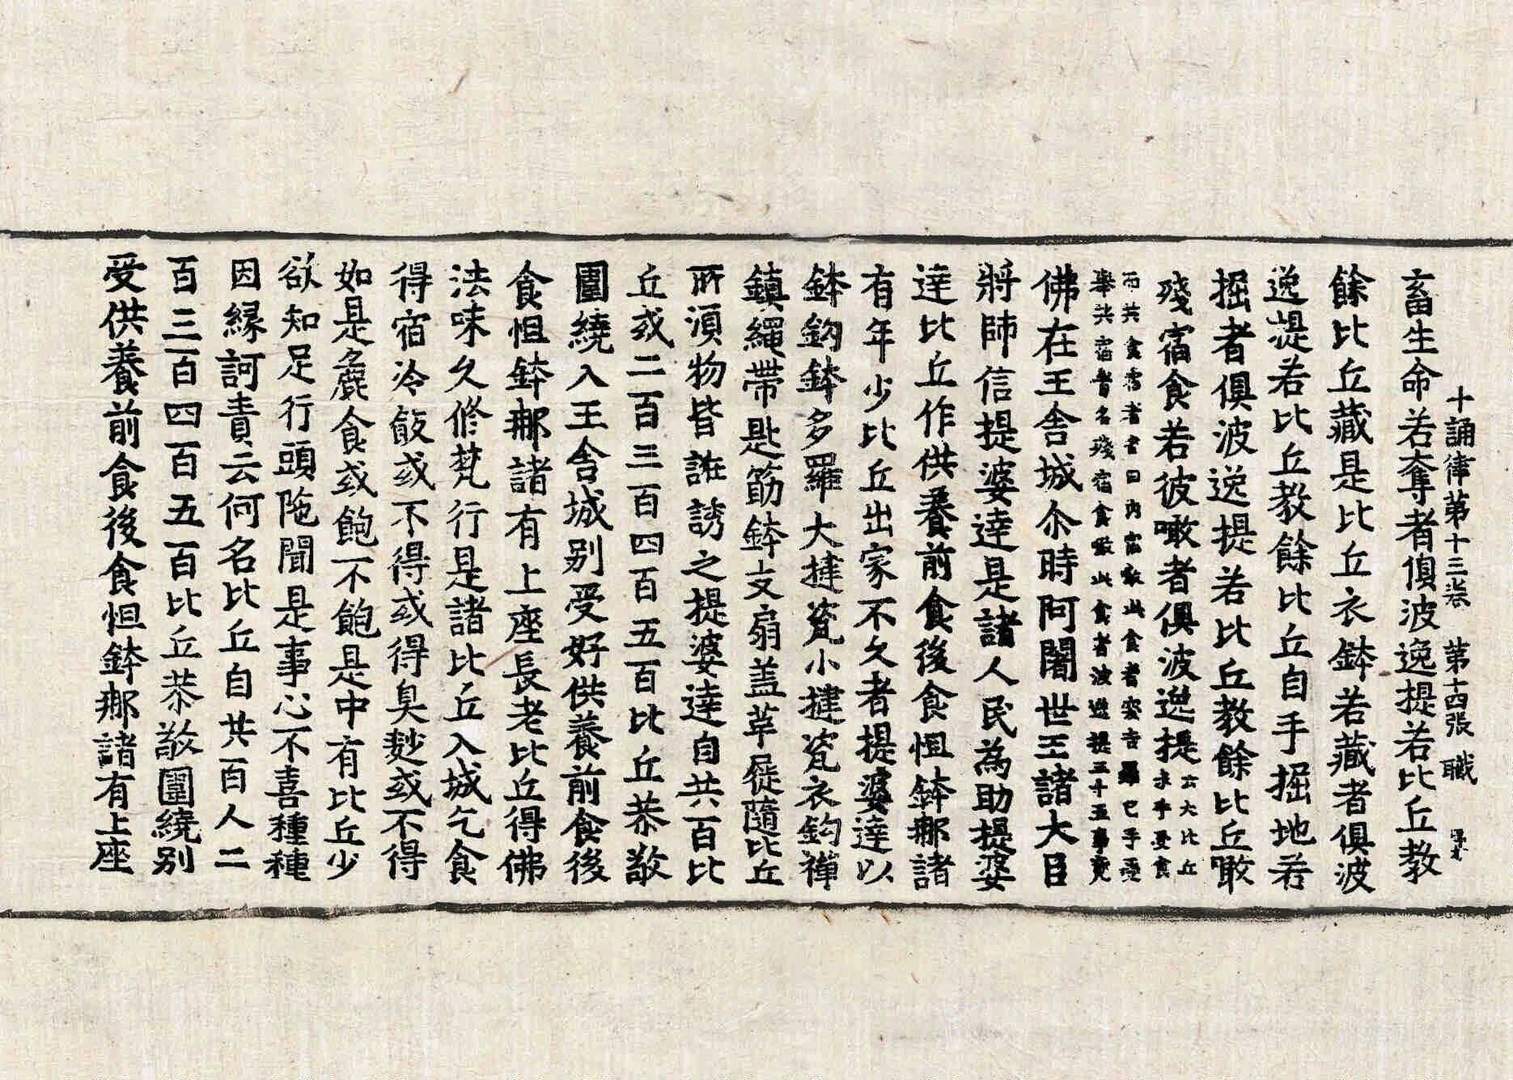 十誦律第十三卷　第十四張　職
畜生命若奪者俱波逸提若比丘教
餘比丘藏是比丘衣鉢若藏者俱波
逸提若比丘教餘比丘自手掘地若
掘者俱波逸提若比丘教餘比丘噉
殘宿食若彼噉者俱波逸提
佛在王舍城尒時阿闍世王諸大臣
將師信提婆達是諸人民為助提婆
達比丘作供養前食後食怛鉢那諸
有年少比丘出家不久者提婆達以
鉢鉤鉢多羅大揵瓷小揵瓷衣鉤禪
鎮繩帶匙筯鉢支扇盖革屣隨比丘
所湏物皆誑誘之提婆達自共百比
丘或二百三百四百五百比丘恭敬
圍繞入王舍城别受好供養前食後
食怛鉢那諸有上座長老比丘得佛
法味久修梵行是諸比丘入城乞食
得宿冷飯或不得或得臭麨或不得
如是麁食或飽不飽是中有比丘少
欲知足行頭陁聞是事心不喜種種
因縁訶責云何名比丘自共百人二
百三百四百五百比丘恭敬圍繞别
受供養前食後食怛鉢那諸有上座